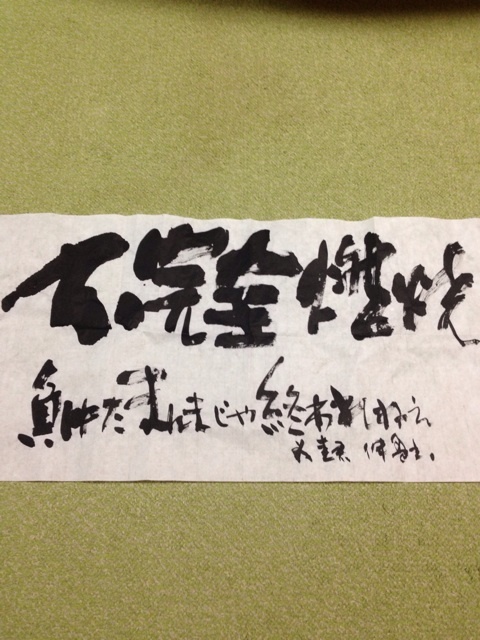 不完全燃焼
負けたまんまじゃ終われねえ